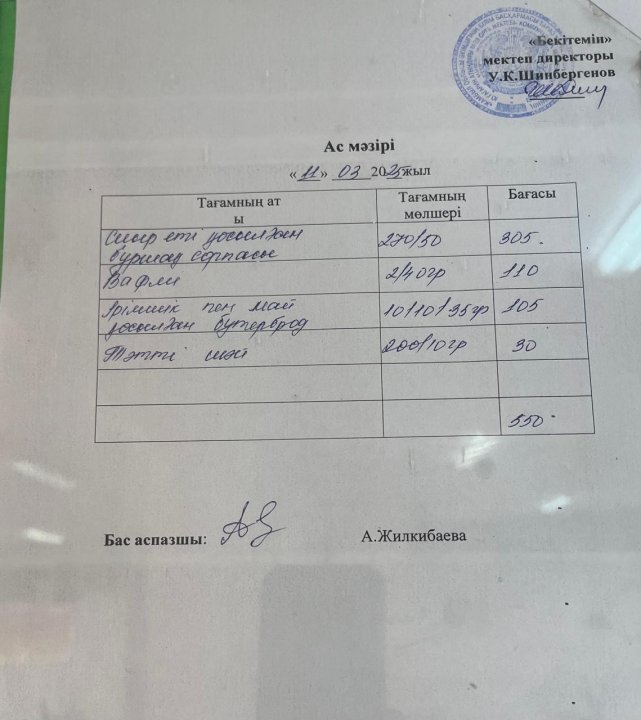 «Бекітемін»
мектеп директоры
У.К.Шинбергенов
Ас мәзірі
«11» 03 2025жыл
Тағамның ат
ы
Тағамның
мөлшері
Бағасы
Сиыр еті қосылған
бұршақ сорпасы
270/50
305.
Вафли
2/40гр
110
Ірімшік пен май
қосылған бутерброд
10/10/35гр
105
Тәтті шәй
200/10гр
30
550
Бас аспазшы:
А.Жилкибаева